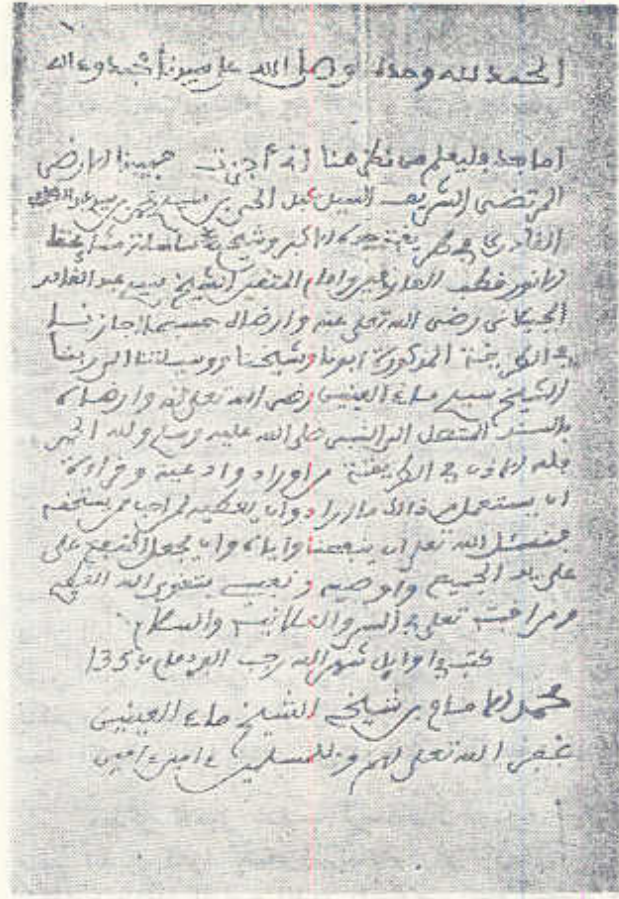 الحمد لله وحده وصلى الله على سيدنا محمد وءاله
اما بعد وليعلم من نظر هنا انه أجزت حبيبنا الارضى
المرتضى الشريف السيد عبد الحي بن سيد
القادري في طريقة
قطب العارفين وامام المتقين الشيخ سيد عبد القادر
الجيلاني رضي الله تعلى عنه وارضاه حسبما اجازنا
في الطريقة المذكورة ابونا وشيخنا ووسيلتنا الى ربنا
الشيخ سيد ماء العينين رضي الله تعلى عنه وارضاه
بالسند المتصل الى النبي صلى الله عليه وسلم ولله الحمد
فله الاذن في الطريقة من اوراد وادعية وقراءة
ان يستعمل من ذالك ما اراد وان يعطيه لمن احب ممن يستحقه
فنسئل الله تعلى ان ينفعنا واياه وان يجعل النفع على
على يد الجميع وأوصيه ونفسي بتقوى الله العظيم
ومراقبته تعلى في السر والعلانية والسلام
كتب في اوايل شهر الله رجب الفرد عام 135
محمد الامام بن شيخه الشيخ ماء العينين
غفر الله تعلى لهم وللمسلمين ءامين ءامين